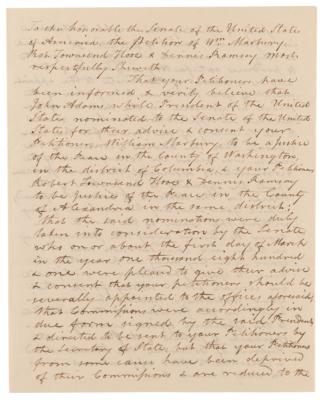 To the honorable the Senate of the United States
of America, the Petition of Wm Marbury,
Robt Townsend Hooe & Dennis Ramsay most
respectfully Sheweth
That your Petitioners have
been informed & verily believe that
John Adams, while President of the United
States, nominated to the Senate of the United
States for their advice & consent your
Petitioner, William Marbury to be a Justice
of the Peace in the County of Washington,
in the district of Columbia, & your Petitioners
Robert Townsend Hooe & Dennis Ramsay
to be Justices of the Peace in the County
of Alexandria in the same district:
that the said nominations were duly
taken into consideration by the Senate
who on or about the first day of March
in the year one thousand eight hundred
& one were pleased to give their advice
& consent that your petitioners should be
severally appointed to the offices aforesaid;
that Commissions were accordingly in
due form signed by the said President
& directed to be sent to your Petitioners by
the Secretary of State, but that your Petitioners
from some cause have been deprived
of their Commissions & are reduced to the